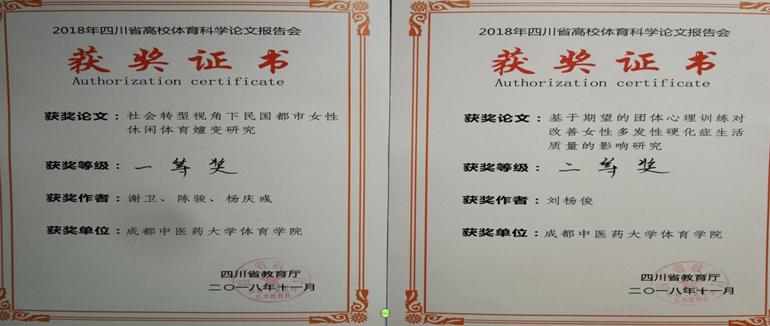 2018年四川省高校体育科学论文报告会
获奖证书
Authorization certificate
获奖论文：社会转型视角下民国都市女性
休闲体育嬗变研究
获奖等级：一等奖
获奖作者：谢卫、陈骏、杨庆彧
获奖单位：成都中医药大学体育学院
四川省教育厅
二〇一八年十一月
2018年四川省高校体育科学论文报告会
获奖证书
Authorization certificate
获奖论文：基于期望的团体心理训练对
改善女性多发性硬化症生活
质量的影响研究
获奖等级：二等奖
获奖作者：刘杨俊
获奖单位：成都中医药大学体育学院
四川省教育厅
二〇一八年十一月